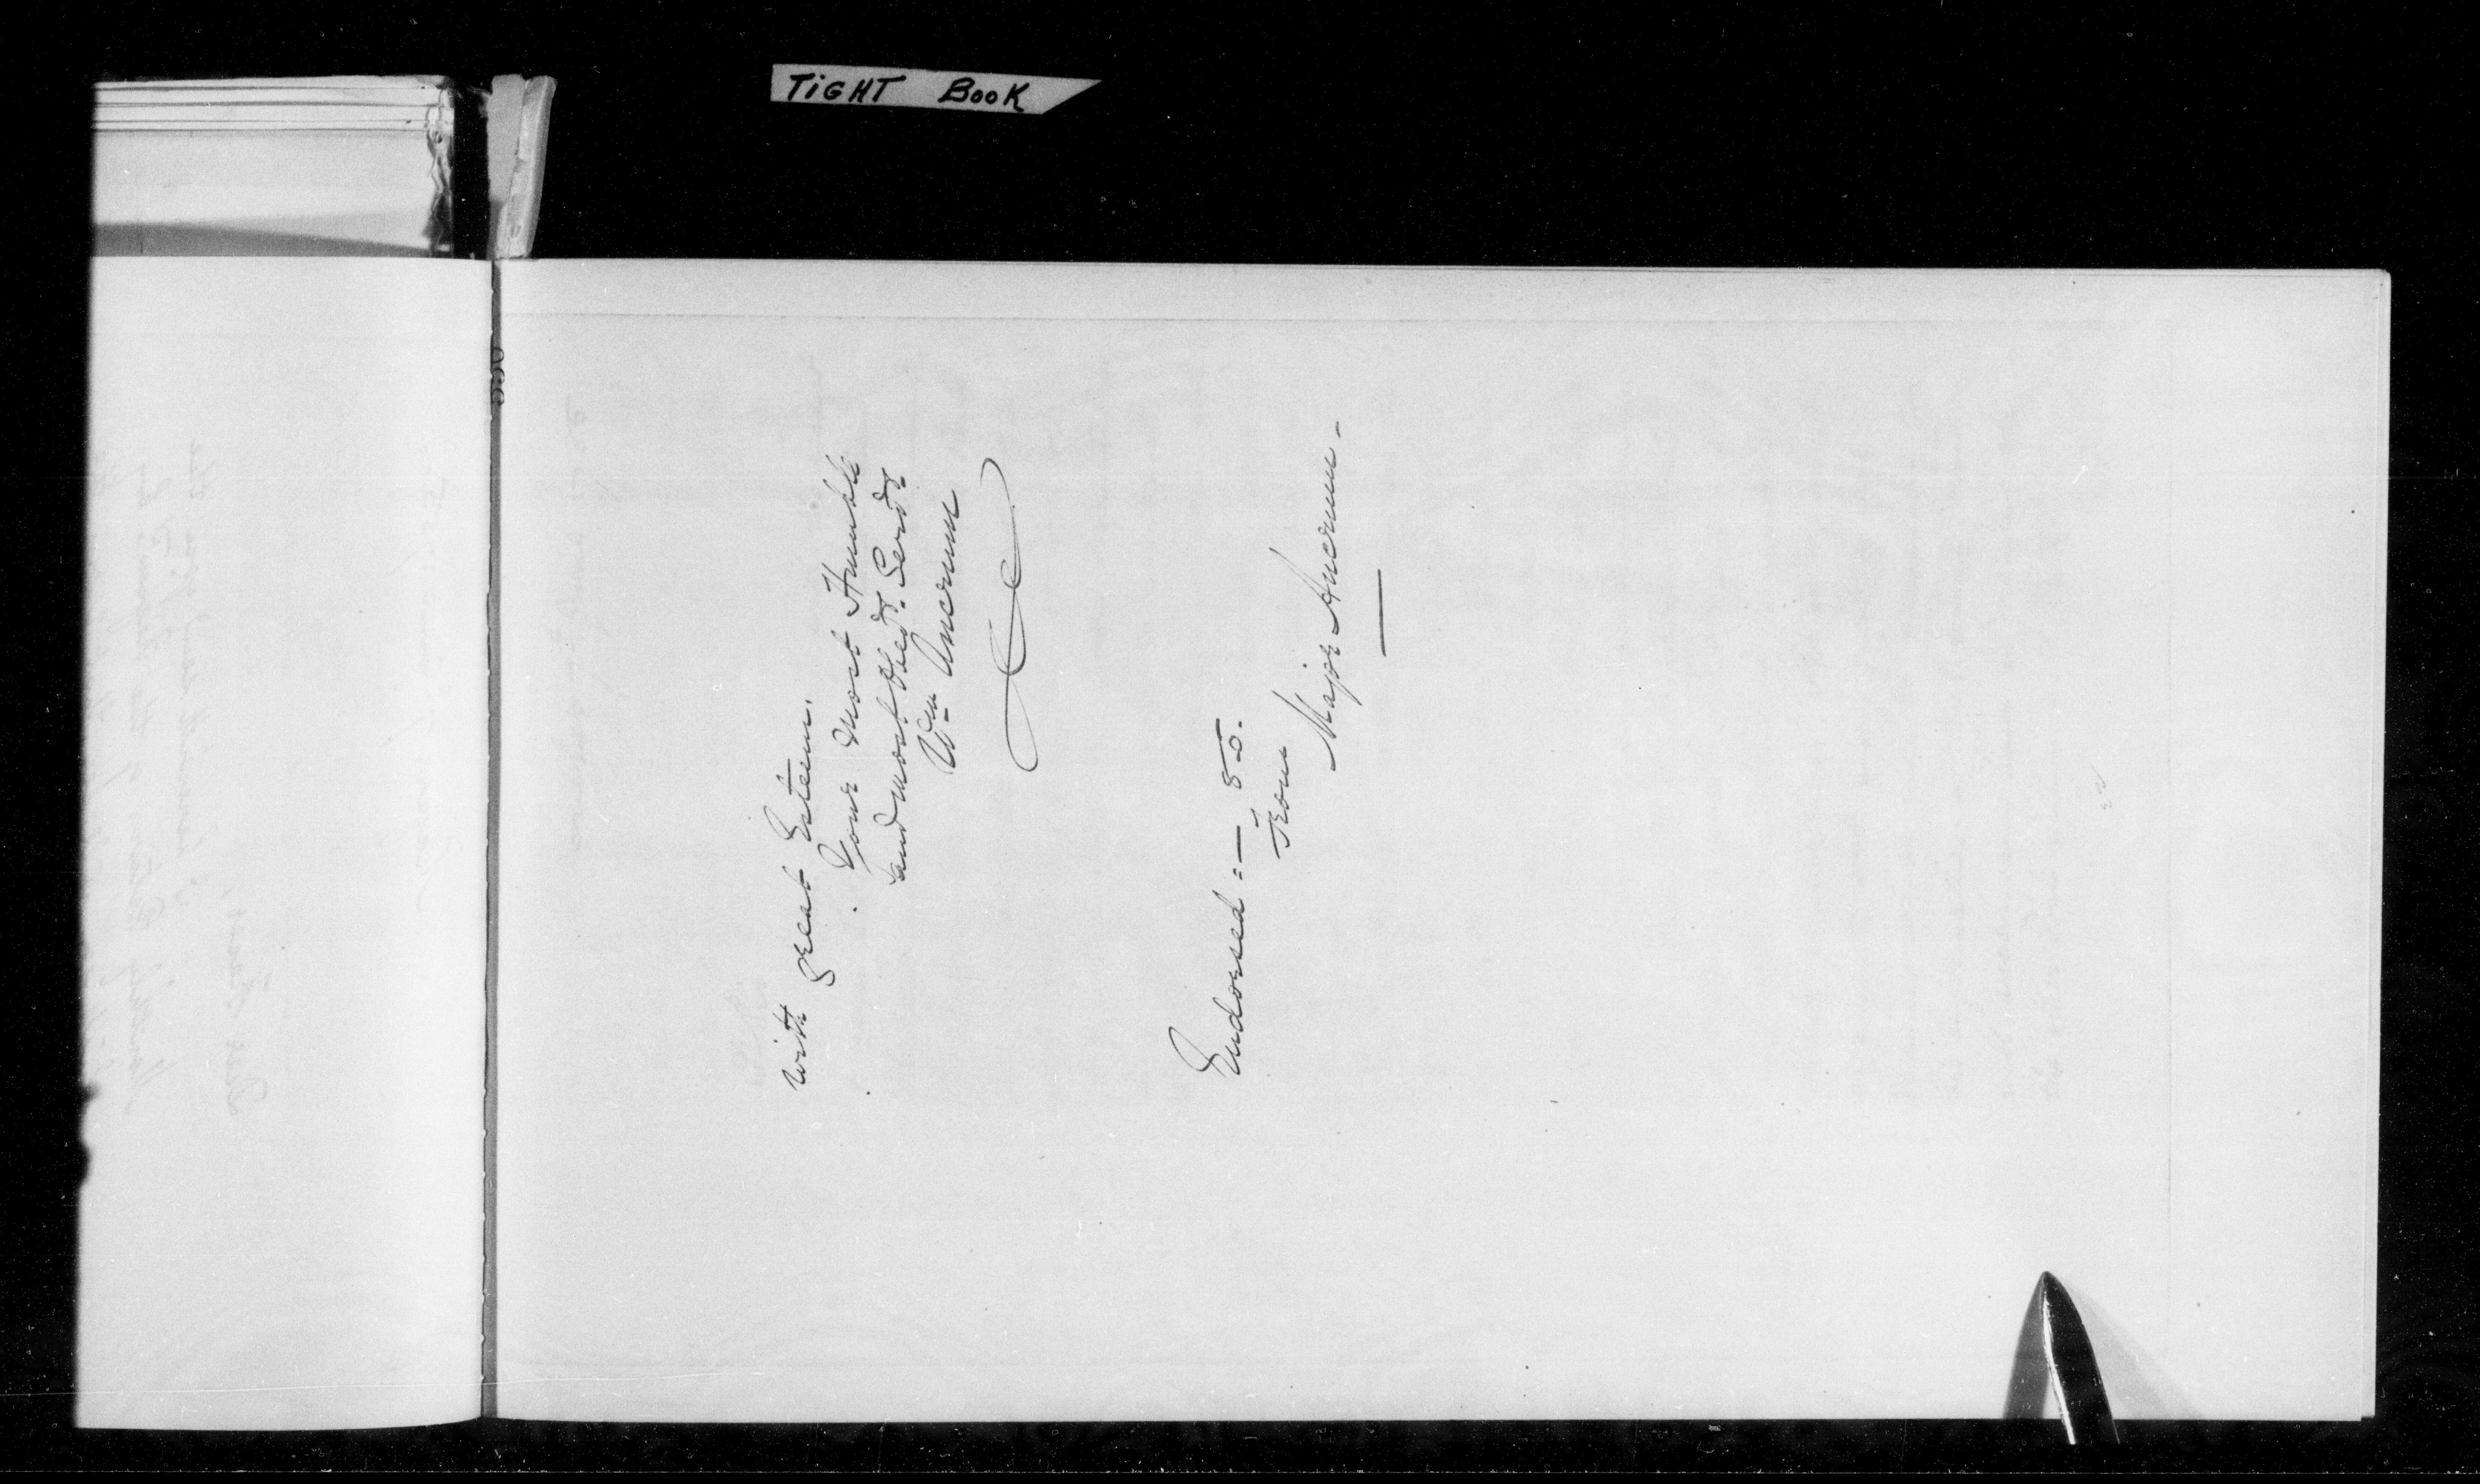 TIGHT BOOK
with great Esteem.
Your most Humble
and most Obedt. Servt.
Wm Ancrum
Endorsed :— 85.
From
Major Ancrum.